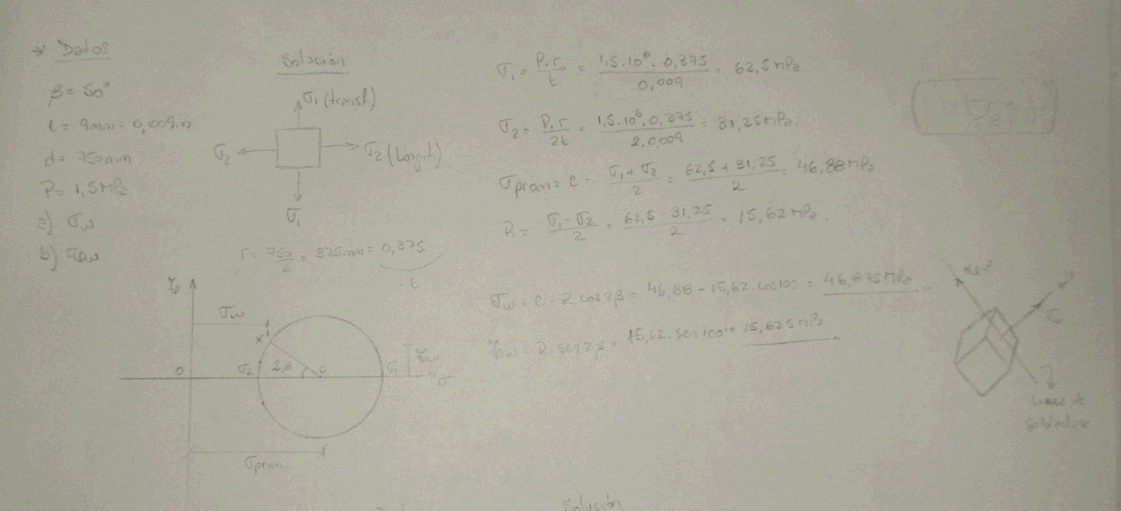 → Datos
β = 50°
t = 9mm = 0,009m
d = 750mm
P = 1,5 MPa
a) σw
b) τw
Solución
σ1 (transf)
σ2
σ2 (Longit)
σ1
r = 750/2 = 375mm = 0,375
t
σ1 = P.r/t = 1,5.10⁶.0,375/0,009 = 62,5 MPa
σ2 = P.r/2t = 1,5.10⁶.0,375/2.0,009 = 31,25 MPa
σprom = C = σ1 + σ2/2 = 62,5 + 31,25/2 = 46,88 MPa
R = σ1 - σ2/2 = 62,5 - 31,25/2 = 15,62 MPa
σw = C - R.cos2β = 46,88 - 15,62.cos100 = 46,875 MPa
τw = R.sen2β = 15,62.sen100 = 15,625 MPa
τ
σw
x'
0
σ2
2β
c
σ1
τw
σ
σprom
σw
Linea de
Soldadura
Solución